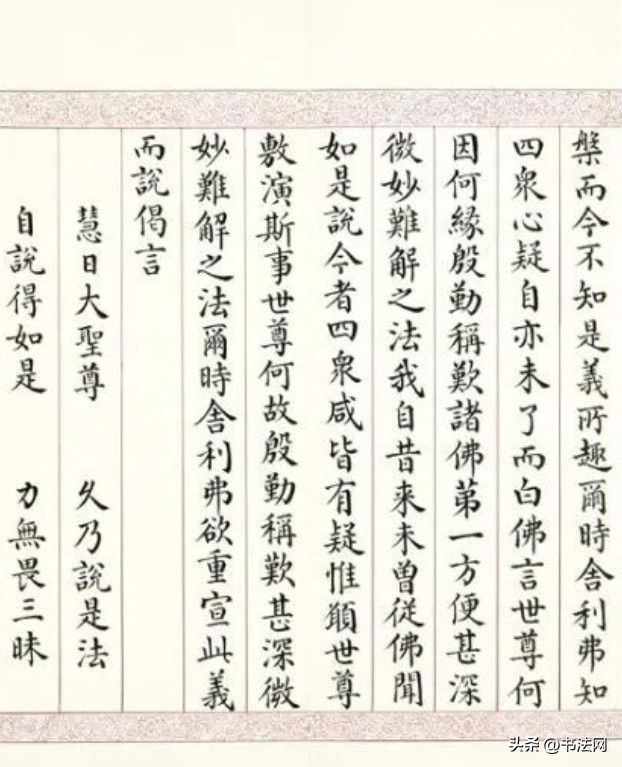 槃而今不知是義所趣爾時舍利弗知
四衆心疑自亦未了而白佛言世尊何
因何緣殷勤稱歎諸佛第一方便甚深
微妙難解之法我自昔來未曾從佛聞
如是說今者四衆咸皆有疑惟願世尊
敷演斯事世尊何故殷勤稱歎甚深微
妙難解之法爾時舍利弗欲重宣此義
而說偈言
慧日大聖尊 久乃說是法
自說得如是 力無畏三昧
头条 @书法网